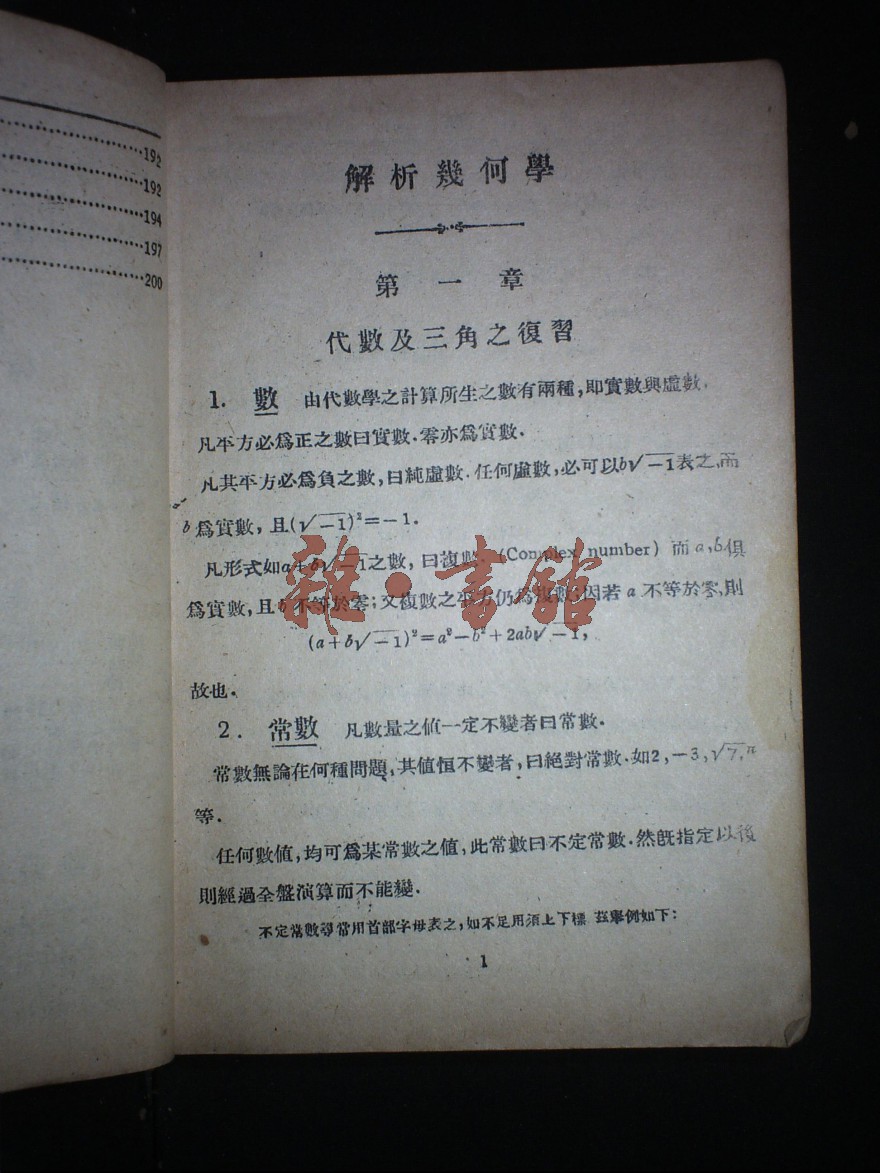 192
192
194
197
200
解析幾何學
第一章
代數及三角之復習
1. 數 由代數學之計算所生之數有兩種,即實數與虛數.
凡平方必爲正之數曰實數.零亦爲實數.
凡其平方必爲負之數,曰純虛數.任何虛數,必可以b√−1表之,而
b爲實數,且(√−1)²=−1.
凡形式如a+b√−1之數,曰複數.(Complex number)而a,b俱
爲實數,且b不等於零;又複數之平方仍爲複數;因若a不等於零,則
(a+b√−1)²=a²−b²+2ab√−1,
故也.
2. 常數 凡數量之値一定不變者曰常數.
常數無論在何種問題,其値恒不變者,曰絕對常數.如2,−3,√7,π
等.
任何數値,均可爲某常數之値,此常數曰不定常數.然旣指定以後
則經過全盤演算而不能變.
不定常數尋常用首部字母表之,如不足用須上下標 茲舉例如下:
1
雜·書館